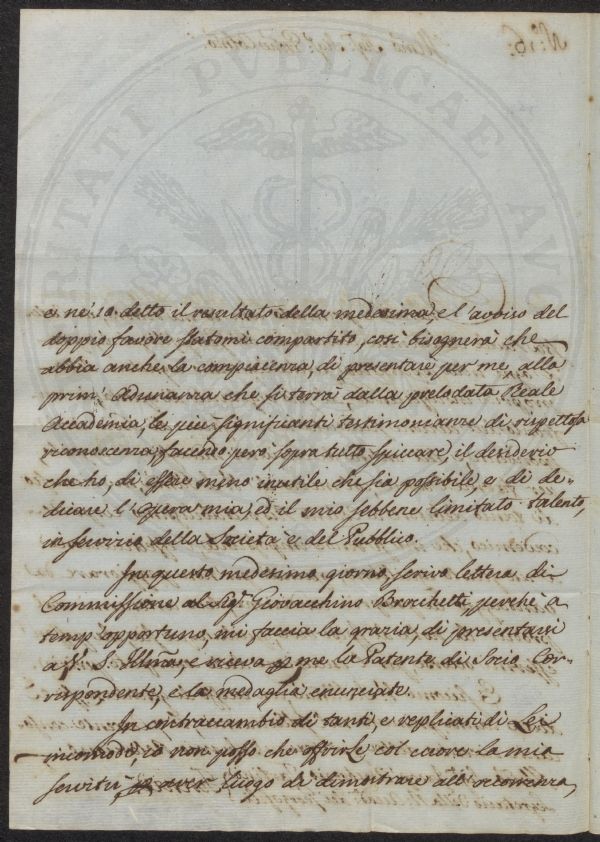 e ne' 10 detto il resultato della medesima, e l'avviso del
doppio favore statomi compartito, così bisognerà che
abbia anche la compiacenza, di presentare per me, alla
prim' adunanza che si terrà dalla prelodata Reale
Accademia, le più significanti testimonianze di rispettosa
riconoscenza, facendo però sopra tutto spiccare, il desiderio
che ho, di essere meno inutile che sia possibile, e di de-
dicare l'opera mia, ed il mio sebbene limitato talento,
in servizio della Società e del Pubblico.
In questo medesimo giorno, scrivo lettera di
Commissione al Sig.r Giovacchino Brocchetti, perchè a
temp' opportuno, mi faccia la grazia, di presentarsi
a V. S. Illma, e riceva per me la Patente di Socio Cor-
rispondente, e la medaglia enunciate.
In contraccambio di tanti, e replicati di Lei
incomodi, io non posso che offrirle col cuore la mia
servitù, aver luogo di dimostrare all' occorrenza,
RITATI PUBLICAE AUC